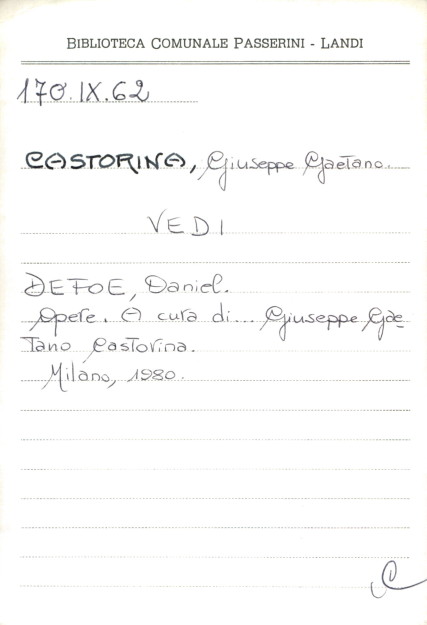 BIBLIOTECA COMUNALE PASSERINI - LANDI
170.IX.62
CASTORINA, Giuseppe Gaetano.
VEDI
DEFOE, Daniel.
Opere. A cura di... Giuseppe Gae-
tano Castorina.
Milano, 1980.
C